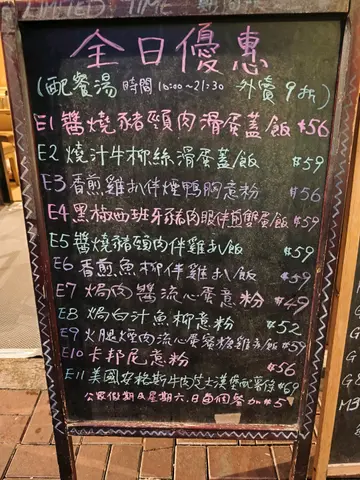 LIMITED TIME
全日優惠
(配餐湯 時間 10:00~21:30 外賣9折)
E1 醬燒豬頸肉滑蛋蓋飯 $56
E2 燒汁牛柳絲滑蛋蓋飯 $59
E3 香煎雞扒伴煙鴨胸意粉 $56
E4 黑椒西班牙豬肉眼伴煎雙蛋飯 $59
E5 醬燒豬頸肉伴雞扒飯 $59
E6 香煎魚柳伴雞扒飯 $59
E7 焗肉醬流心蛋意粉 $49
E8 焗白汁魚柳意粉 $52
E9 火腿煙肉流心蛋蜜椒雞扒飯 $59
E10 卡邦尼意粉 $56
E11 美國安格斯牛肉芝士漢堡配薯條 $69
公眾假期及星期六.日每個餐加$5